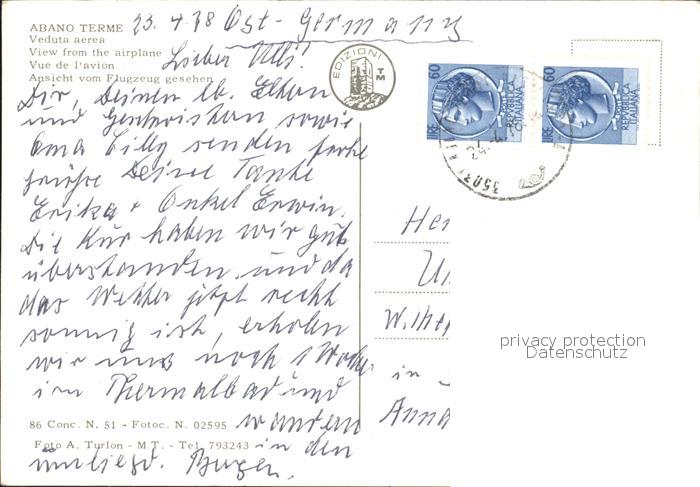 23.4.78 Ost-Germany
ABANO TERME
Veduta aerea
View from the airplane
Vue de l'avion
Ansicht vom Flugzeug gesehen
Lieber Ulli!
Dir, Deinen lb. Eltern
und Geschwistern sowie
Oma Cilly senden frohe
Grüße Deine Tante
Erika + Onkel Erwin.
Die Kur haben wir gut
überstanden und da
das Wetter jetzt recht
sonnig ist, erholen
wir uns noch 1 Woche
im Thermalbad und
wandern
in den
umliegd. Bergen.
86 Conc. N. 51 - Fotoc. N. 02595
Foto A. Turlon - M.T. - Tel. 793243
EDIZIONI MT
LIRE 60 REPUBBLICA ITALIANA
LIRE 60 REPUBBLICA ITALIANA
Her
W.lhe
in
Anna
privacy protection
Datenschutz